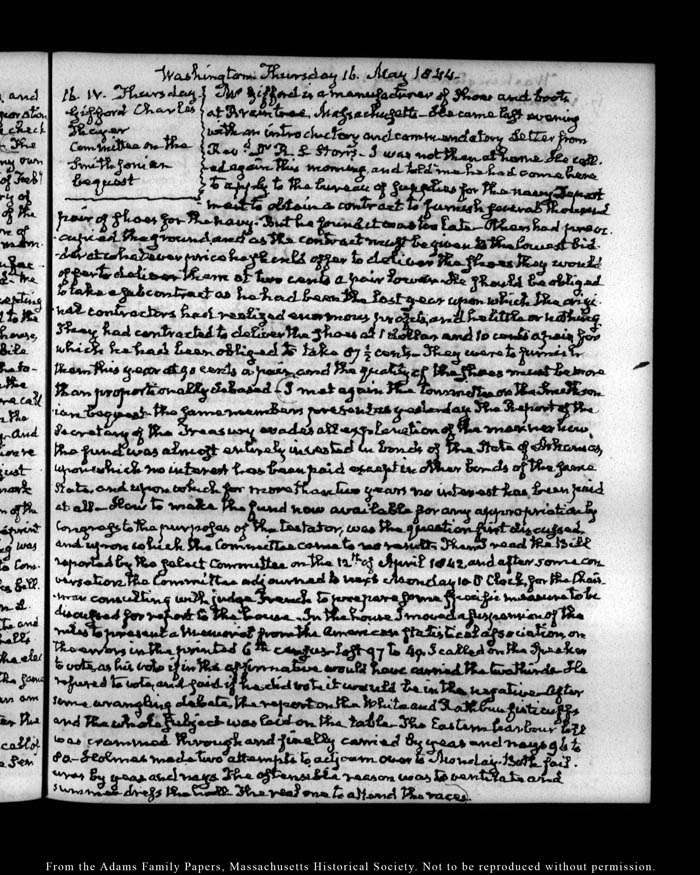 Washington Thursday 16. May 1844.
16. IV. Thursday
Gifford Charles
Thayer
Committee on the
Smithsonian
bequest
Mr Gifford is a manufacturer of Shoes and boots
at Braintree, Massachusetts. He came last evening
with an introductory and commendatory Letter from
Revd. Dr R. S Storrs. I was not then at home. He call-
ed again this morning, and told me he had come here
to apply to the bureau of supplies for the navy Depart
ment to obtain a contract to furnish several thousand
pair of shoes for the navy. But he found it was too late. Others had preoc-
cupied the ground, and as the contract must be given to the lowest bid-
der at whatever price he should offer to deliver the shoes they would
offer to deliver them at two cents a pair lower. He should be obliged
to take a subcontract as he had been the last year upon which the origi-
nal contractors had realized enormous profits, and he little or nothing.
They had contracted to deliver the shoes at 1 dollar and 10 cents a pair for
which he had been obliged to take 87½ cents. They were to furnish
them this year at 90 cents a pair, and the quality of the shoes must be more
than proportionally debased. I met again the Committee on the Smithson-
ian bequest the same members present as yesterday. The Report of the
Secretary of the Treasury evades all explanation of the manner how
the fund was almost entirely invested in bonds of the State of Arkansas,
upon which no interest has been paid except in other bonds of the same
State, and upon which for more than two years no interest has been paid
at all. How to make the fund now available for any appropriation by
Congress to the purposes of the testator, was the question first discussed
and upon which the Committee came to no result. Then I read the Bill
reported by the select Committee on the 12th of April 1842 and after some con
versation the Committee adjourned to next Monday 10 O'Clock, for the Chair-
man consulting with judge French to prepare some specific measure to be
discussed for report to the house. In the house I moved a suspension of the
rules to present a Memorial from the American Statistical association, on
the errors in the printed 6th census lost 97 to 49. I called on the Speaker
to vote, as his vote if in the affirmative would have carried the two thirds. He
refused to vote, and said if he did vote it would be in the negative. After
some wrangling debate, the report on the White and Rathbun fisticuffs
and the whole subject was laid on the table. The Eastern harbour bill
was crammed through and finally carried by yeas and nays 96 to
80. Holmes made two attempts to adjourn over to Monday. Both fail-
ures by yeas and nays. The ostensible reason was to ventilate and
summer dress the hall. The real one to attend the races.
From the Adams Family Papers, Massachusetts Historical Society. Not to be reproduced without permission.